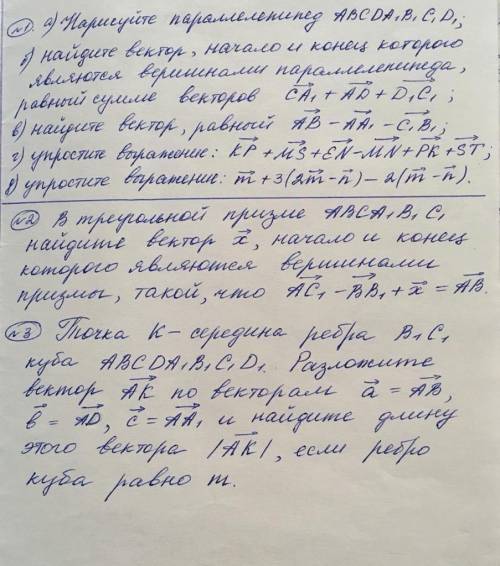 №1. а) Нарисуйте параллелепипед ABCDA₁B₁C₁D₁;
б) найдите вектор, начало и конец которого
являются вершинами параллелепипеда,
равный сумме векторов CA₁ + AD + D₁C₁;
в) найдите вектор, равный AB – AA₁ – C₁B₁;
г) упростите выражение: KP + MS + EN – MN + PK + ST;
д) упростите выражение: m + 3(2m – n) – 2(m – n).
№2 В треугольной призме ABCA₁B₁C₁
найдите вектор x, начало и конец
которого являются вершинами
призмы, такой, что AC₁ – BB₁ + x = AB.
№3 Точка K – середина ребра B₁C₁
куба ABCDA₁B₁C₁D₁. Разложите
вектор AK по векторам a = AB,
b = AD, c = AA₁ и найдите длину
этого вектора |AK|, если ребро
куба равно m.